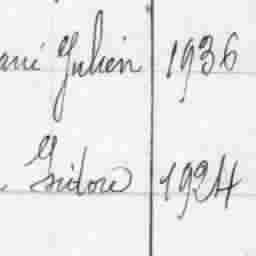 Julien 1936
Isidore 1924